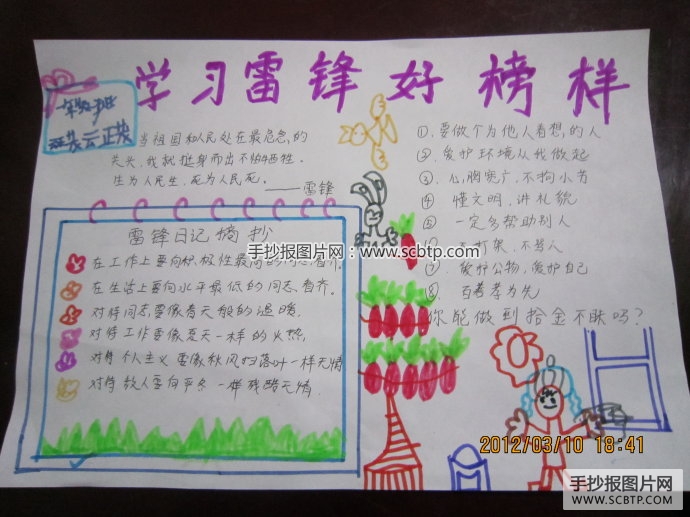 学习雷锋好榜样
当祖国和人民处在最危急的
关头,我就挺身而出不怕牺牲。
生为人民生,死为人民死。
——雷锋
雷锋日记摘抄
在工作上要向积极性最高的同志看齐。
在生活上要向水平最低的同志看齐。
对待同志要像春天般的温暖
对待工作要像夏天一样的火热
对待个人主义要像秋风扫落叶一样无情
对待敌人要向严冬一样残酷无情.
①.要做个为他人着想的人
②.爱护环境从我做起
③.心胸宽广,不拘小节
④ 懂文明,讲礼貌
⑤ 一定多帮助别人
⑥ 不打架,不骂人
⑦ 爱护公物,爱护自己
⑧ 百善孝为先
你能做到拾金不昧吗?
手抄报图片网:www.scbtp.com
2012/03/10 18:41
手抄报图片网
WWW.SCBTP.COM